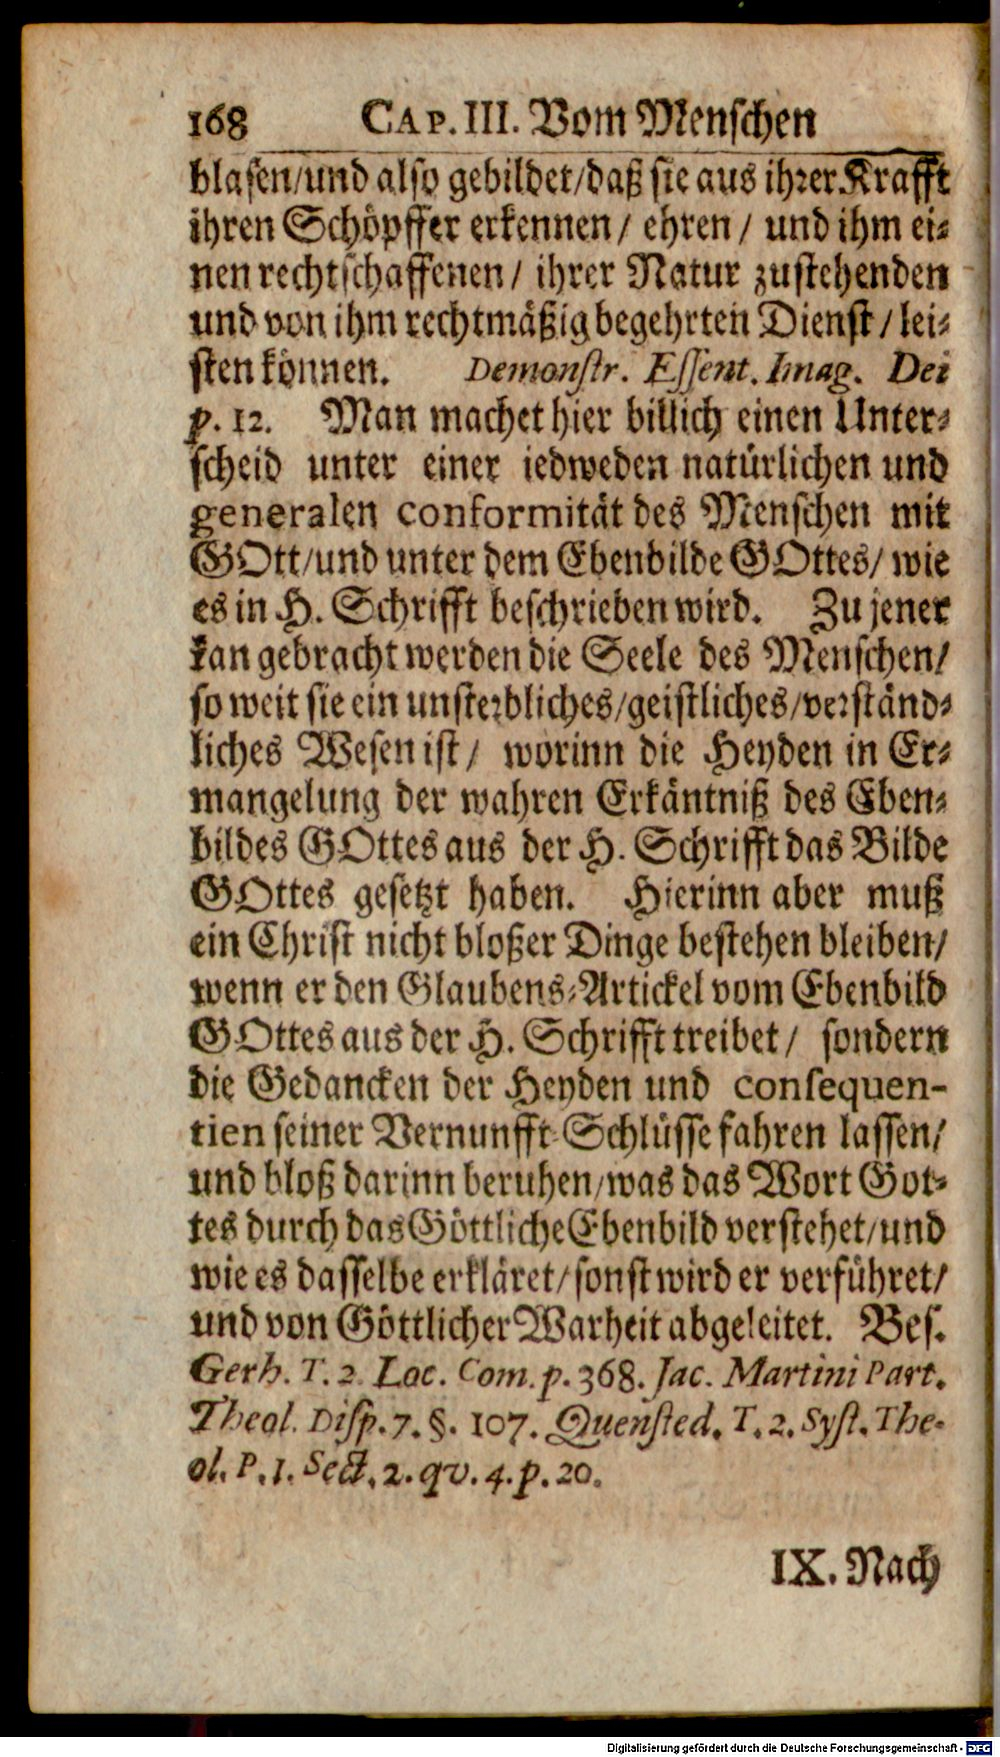 168 CAP. III. Vom Menschen
blasen/und also gebildet/daß sie aus ihrer Krafft
ihren Schöpffer erkennen/ ehren/ und ihm ei-
nen rechtschaffenen/ ihrer Natur zustehenden
und von ihm rechtmäßig begehrten Dienst/ lei-
sten können. Demonstr. Essent. Imag. Dei
p. 12. Man machet hier billich einen Unter-
scheid unter einer iedweden natürlichen und
generalen conformität des Menschen mit
GOtt/und unter dem Ebenbilde GOttes/ wie
es in H. Schrifft beschrieben wird. Zu jener
kan gebracht werden die Seele des Menschen/
so weit sie ein unsterbliches/geistliches/verständ-
liches Wesen ist/ worinn die Heyden in Er-
mangelung der wahren Erkäntniß des Eben-
bildes GOttes aus der H. Schrifft das Bilde
GOttes gesetzt haben. Hierinn aber muß
ein Christ nicht bloßer Dinge bestehen bleiben/
wenn er den Glaubens-Artickel vom Ebenbild
GOttes aus der H. Schrifft treibet/ sondern
die Gedancken der Heyden und consequen-
tien seiner Vernunfft-Schlüsse fahren lassen/
und bloß darinn beruhen/was das Wort Got-
tes durch das Göttliche Ebenbild verstehet/und
wie es dasselbe erkläret/sonst wird er verführet/
und von Göttlicher Warheit abgeleitet. Bes.
Gerh. T. 2. Loc. Com. p. 368. Jac. Martini Part.
Theol. Disp. 7. §. 107. Quensted. T. 2. Syst. The-
ol. P. 1. Sect. 2. qv. 4. p. 20.
IX. Nach
Digitalisierung gefördert durch die Deutsche Forschungsgemeinschaft - DFG